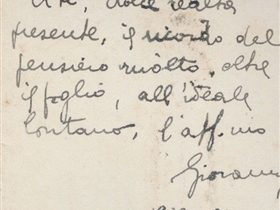 che, dalla realtà
presente, il ricordo del
pensiero rivolto, oltre
il foglio, all'ideale
lontano, l'aff.mo
Giovanni